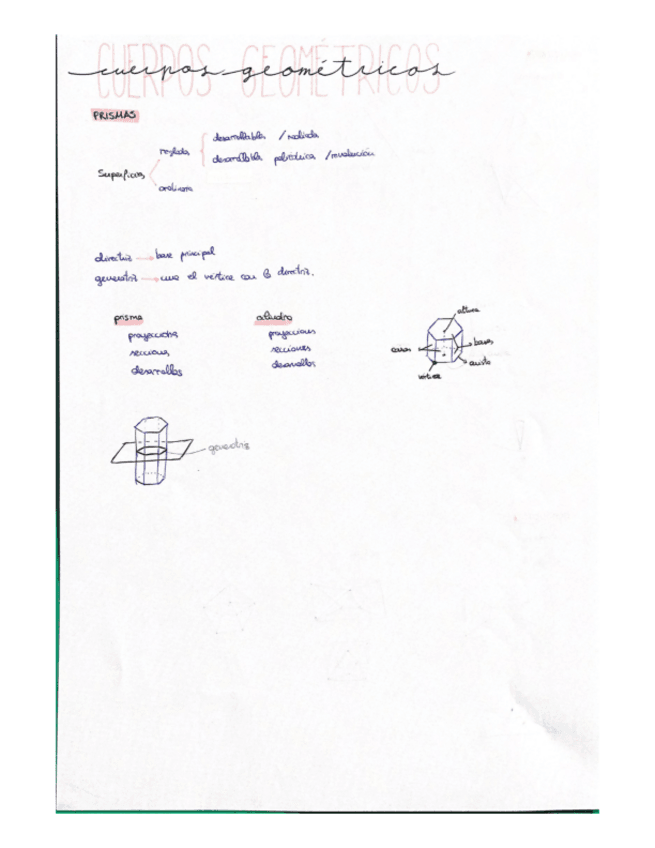 CUERPOS GEOMÉTRICOS
cuerpos geométricos
PRISMAS
regladas
desarrollables
desarrollables /revolución
Superficies
directriz → base principal
generatriz → une el vértice con la directriz.
prisma
proyecciones
secciones
desarrollos
proyecciones
secciones
desarrollos
altura
caras
bases
arista
vértice
generatriz